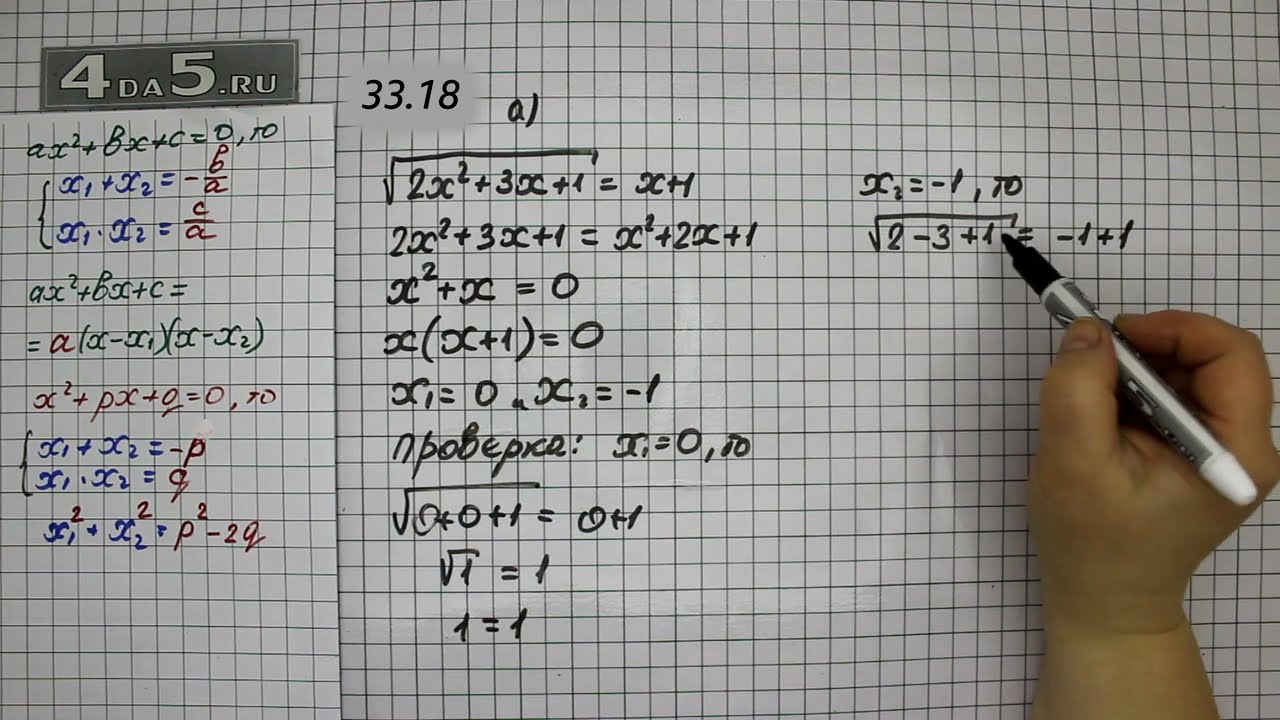 4DA5.RU
33.18
ax²+bx+c=0, то
x₁+x₂=-b/a
x₁·x₂=c/a
ax²+bx+c=
=a(x-x₁)(x-x₂)
x²+px+q=0, то
x₁+x₂=-p
x₁·x₂=q
x₁²+x₂²=p²-2q
а)
√(2x²+3x+1)=x+1
2x²+3x+1=x²+2x+1
x²+x=0
x(x+1)=0
x₁=0 и x₂=-1
проверка: x₁=0, то
√(0+0+1)=0+1
√1=1
1=1
x₂=-1, то
√(2-3+1)=-1+1